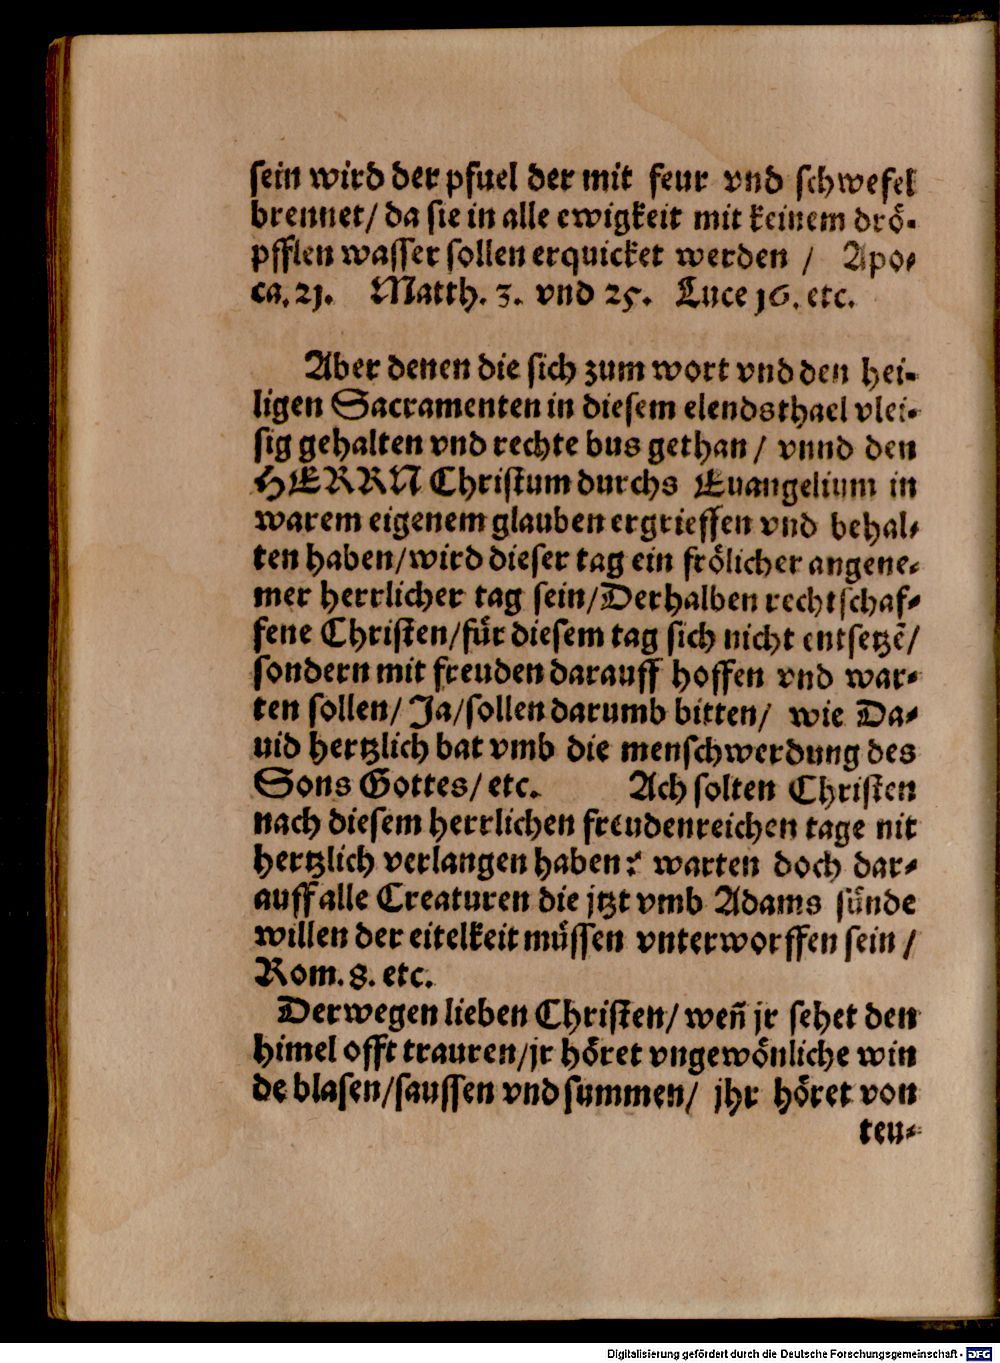 sein wird der pfuel der mit feur vnd schwefel
brennet/ da sie in alle ewigkeit mit keinem drö-
pfflen wasser sollen erquicket werden / Apo-
ca. 21. Matth. 3. vnd 25. Luce 16. etc.
Aber denen die sich zum wort vnd den hei-
ligen Sacramenten in diesem elendsthael vlei-
sig gehalten vnd rechte bus gethan / vnnd den
HERRN Christum durchs Euangelium in
warem eigenem glauben ergrieffen vnd behal-
ten haben/wird dieser tag ein frölicher angene-
mer herrlicher tag sein/Derhalben rechtschaf-
fene Christen/für diesem tag sich nicht entsetzē/
sondern mit freuden darauff hoffen vnd war-
ten sollen/ Ja/sollen darumb bitten/ wie Da-
uid hertzlich bat vmb die menschwerdung des
Sons Gottes/ etc. Ach solten Christen
nach diesem herrlichen freudenreichen tage nit
hertzlich verlangen haben? warten doch dar-
auff alle Creaturen die jtzt vmb Adams sünde
willen der eitelkeit müssen vnterworffen sein /
Rom. 8. etc.
Derwegen lieben Christen/ weñ jr sehet den
himel offt trauren/jr höret vngewönliche win
de blasen/saussen vnd summen/ jhr höret von
teu-
Digitalisierung gefördert durch die Deutsche Forschungsgemeinschaft - DFG